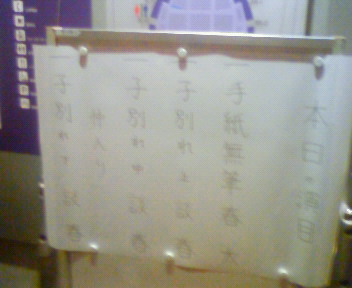 本日の演目
一 手紙無筆 春太
一 子別れ上 談春
一 子別れ中 談春
仲入り
一 子別れ下 談春